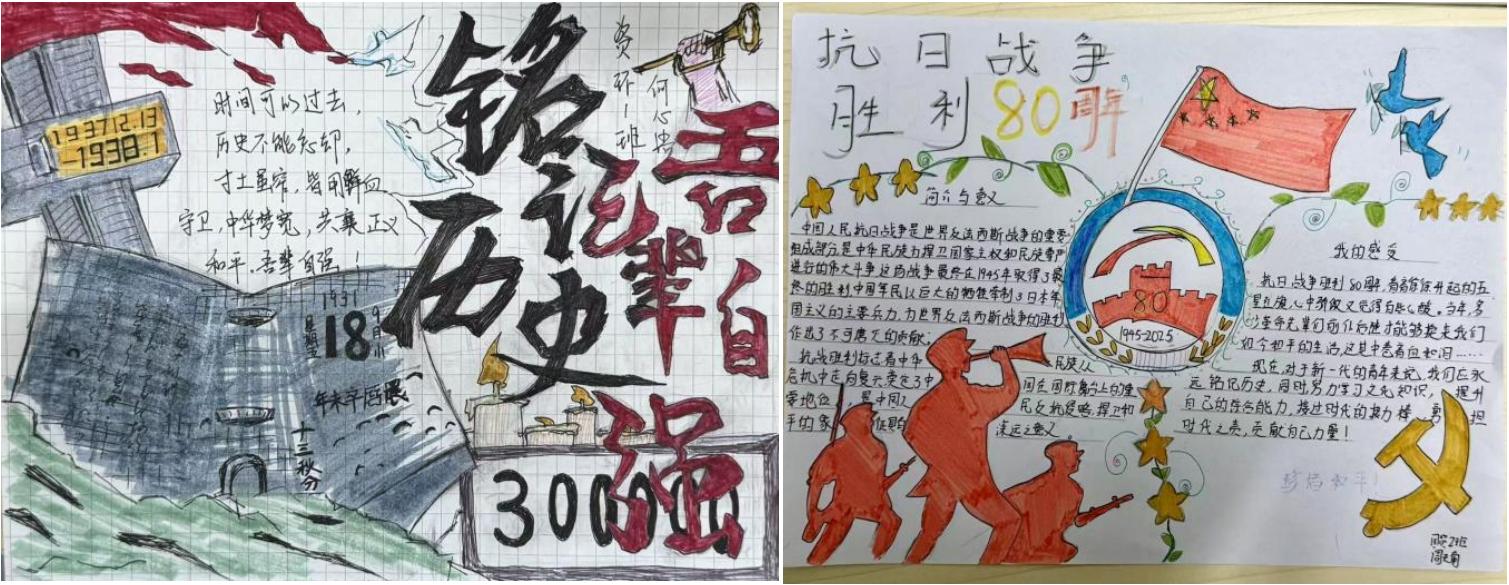 193712.13
-1938.1
时间可以过去，
历史不能忘却，
寸土虽窄，皆用鲜血
守卫，中华梦宽，共襄正义
和平，吾辈自强！
铭记历史
吾辈自强
资环一班
1931
18
九月小
年未辛历农
十三秋分
300000
抗日战争
胜利80周年
简介与意义
中国人民抗日战争是世界反法西斯战争的重要
组成部分是中华民族为捍卫国家主权和民族尊严
进行的伟大斗争这场战争最终在1945年取得了最
终的胜利,中国军民以巨大的牺牲牵制了日本军
国主义的主要兵力,为世界反法西斯战争的胜利
作出了不可磨灭的贡献;
抗战胜利标志着中华
民族从
危机中走向复兴奠定了中
国在国际舞台上的重
要地位
是中国人
民反抗侵略,捍卫和
平的象
深远之意义
80
1945-2025
我的感受
抗日战争胜利80周年,看着徐徐升起的五
星红旗心中
革命先辈们
才能够换来我们
如今和平的生活,这其中
现在,对于新一代的青年来说,我们应永
远铭记历史,同时努力学习文化知识,提升
自己的综合能力,接过时代的接力棒,勇担
时代之责,贡献自己力量!
珍惜和平!